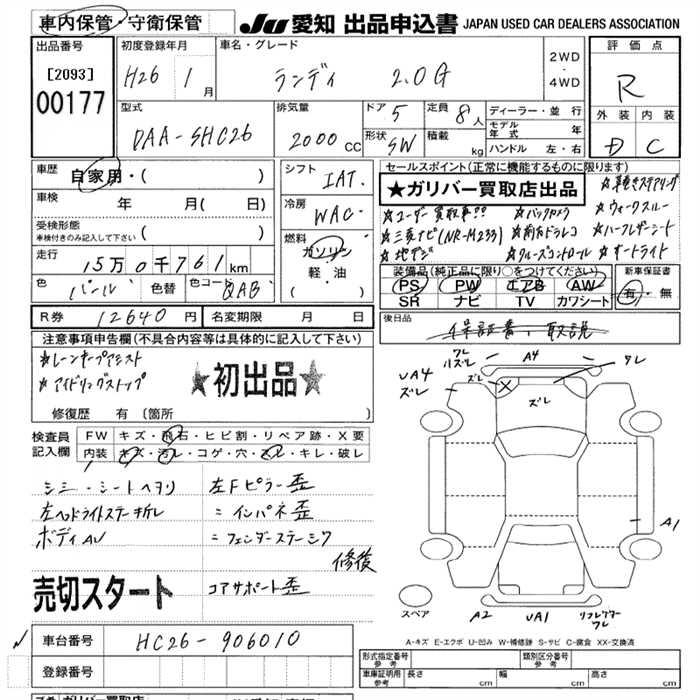 車内保管・守衛保管
JU 愛知 出品申込書 JAPAN USED CAR DEALERS ASSOCIATION
出品番号
[2093]
00177
初度登録年月
H26 1月
車名・グレード
ランディ 2.0G
2WD
・
4WD
評価点
R
外装 内装
D C
型式
DAA-SHC26
排気量
2000 CC
ドア 5
形状 SW
定員 8人
積載 kg
ディーラー・並行
モデル年式 年
ハンドル 左・右
車歴
自家用・( )
車検 年 月( 日)
受検形態
車検付きのみ記入して下さい ( )
走行 15万0千761km
色 パール 色替 色コード QAB
シフト IAT.
冷房 WAC
燃料
ガソリン
軽油
( )
セールスポイント(正常に機能するものに限ります)
★ガリバー買取店出品
☆ユーザー買取車!!
☆三菱ナビ(NR-M233)
☆地デジ
☆バックカメラ
☆前方ドラレコ
☆クルーズコントロール
☆革巻きステアリング
☆ウォークスルー
☆ハーフレザーシート
☆オートライト
装備品(純正品に限り○をつけてください)
PS PW エアB AW
SR ナビ TV カワシート
新車保証書
有・無
R券 12640円 名変期限 月 日
後日品
保証書、取説
注意事項申告欄(不具合内容等は具体的に記入して下さい)
☆レーンキープアシスト
☆アイドリングストップ
★初出品★
修復歴 有(箇所
検査員
記入欄
FW キズ・飛石・ヒビ割・リペア跡・X要
内装 キズ・汚レ・コゲ・穴・スレ・キレ・破レ
シミ・シートヘタリ
左ヘッドライトステー折レ
ボディAU
左Fピラー歪
〃 インパネ歪
〃 フェンダーステージワ
修復
コアサポート歪
売切スタート
ワレ
ハズレ
A4
ワレ
UA4
ズレ
ズレ
ズレ
A1
スペア
A2
UA1
リフレクターワレ
A-キズ E-エクボ U-凹み W-補修跡 S-サビ C-腐食 XX-交換済
車台番号 HC26-906010
登録番号
形式指定番号
参考
類別区分番号
参考
車庫証明用
参考
長さ cm 幅 cm 高さ cm
ガリバー買取店